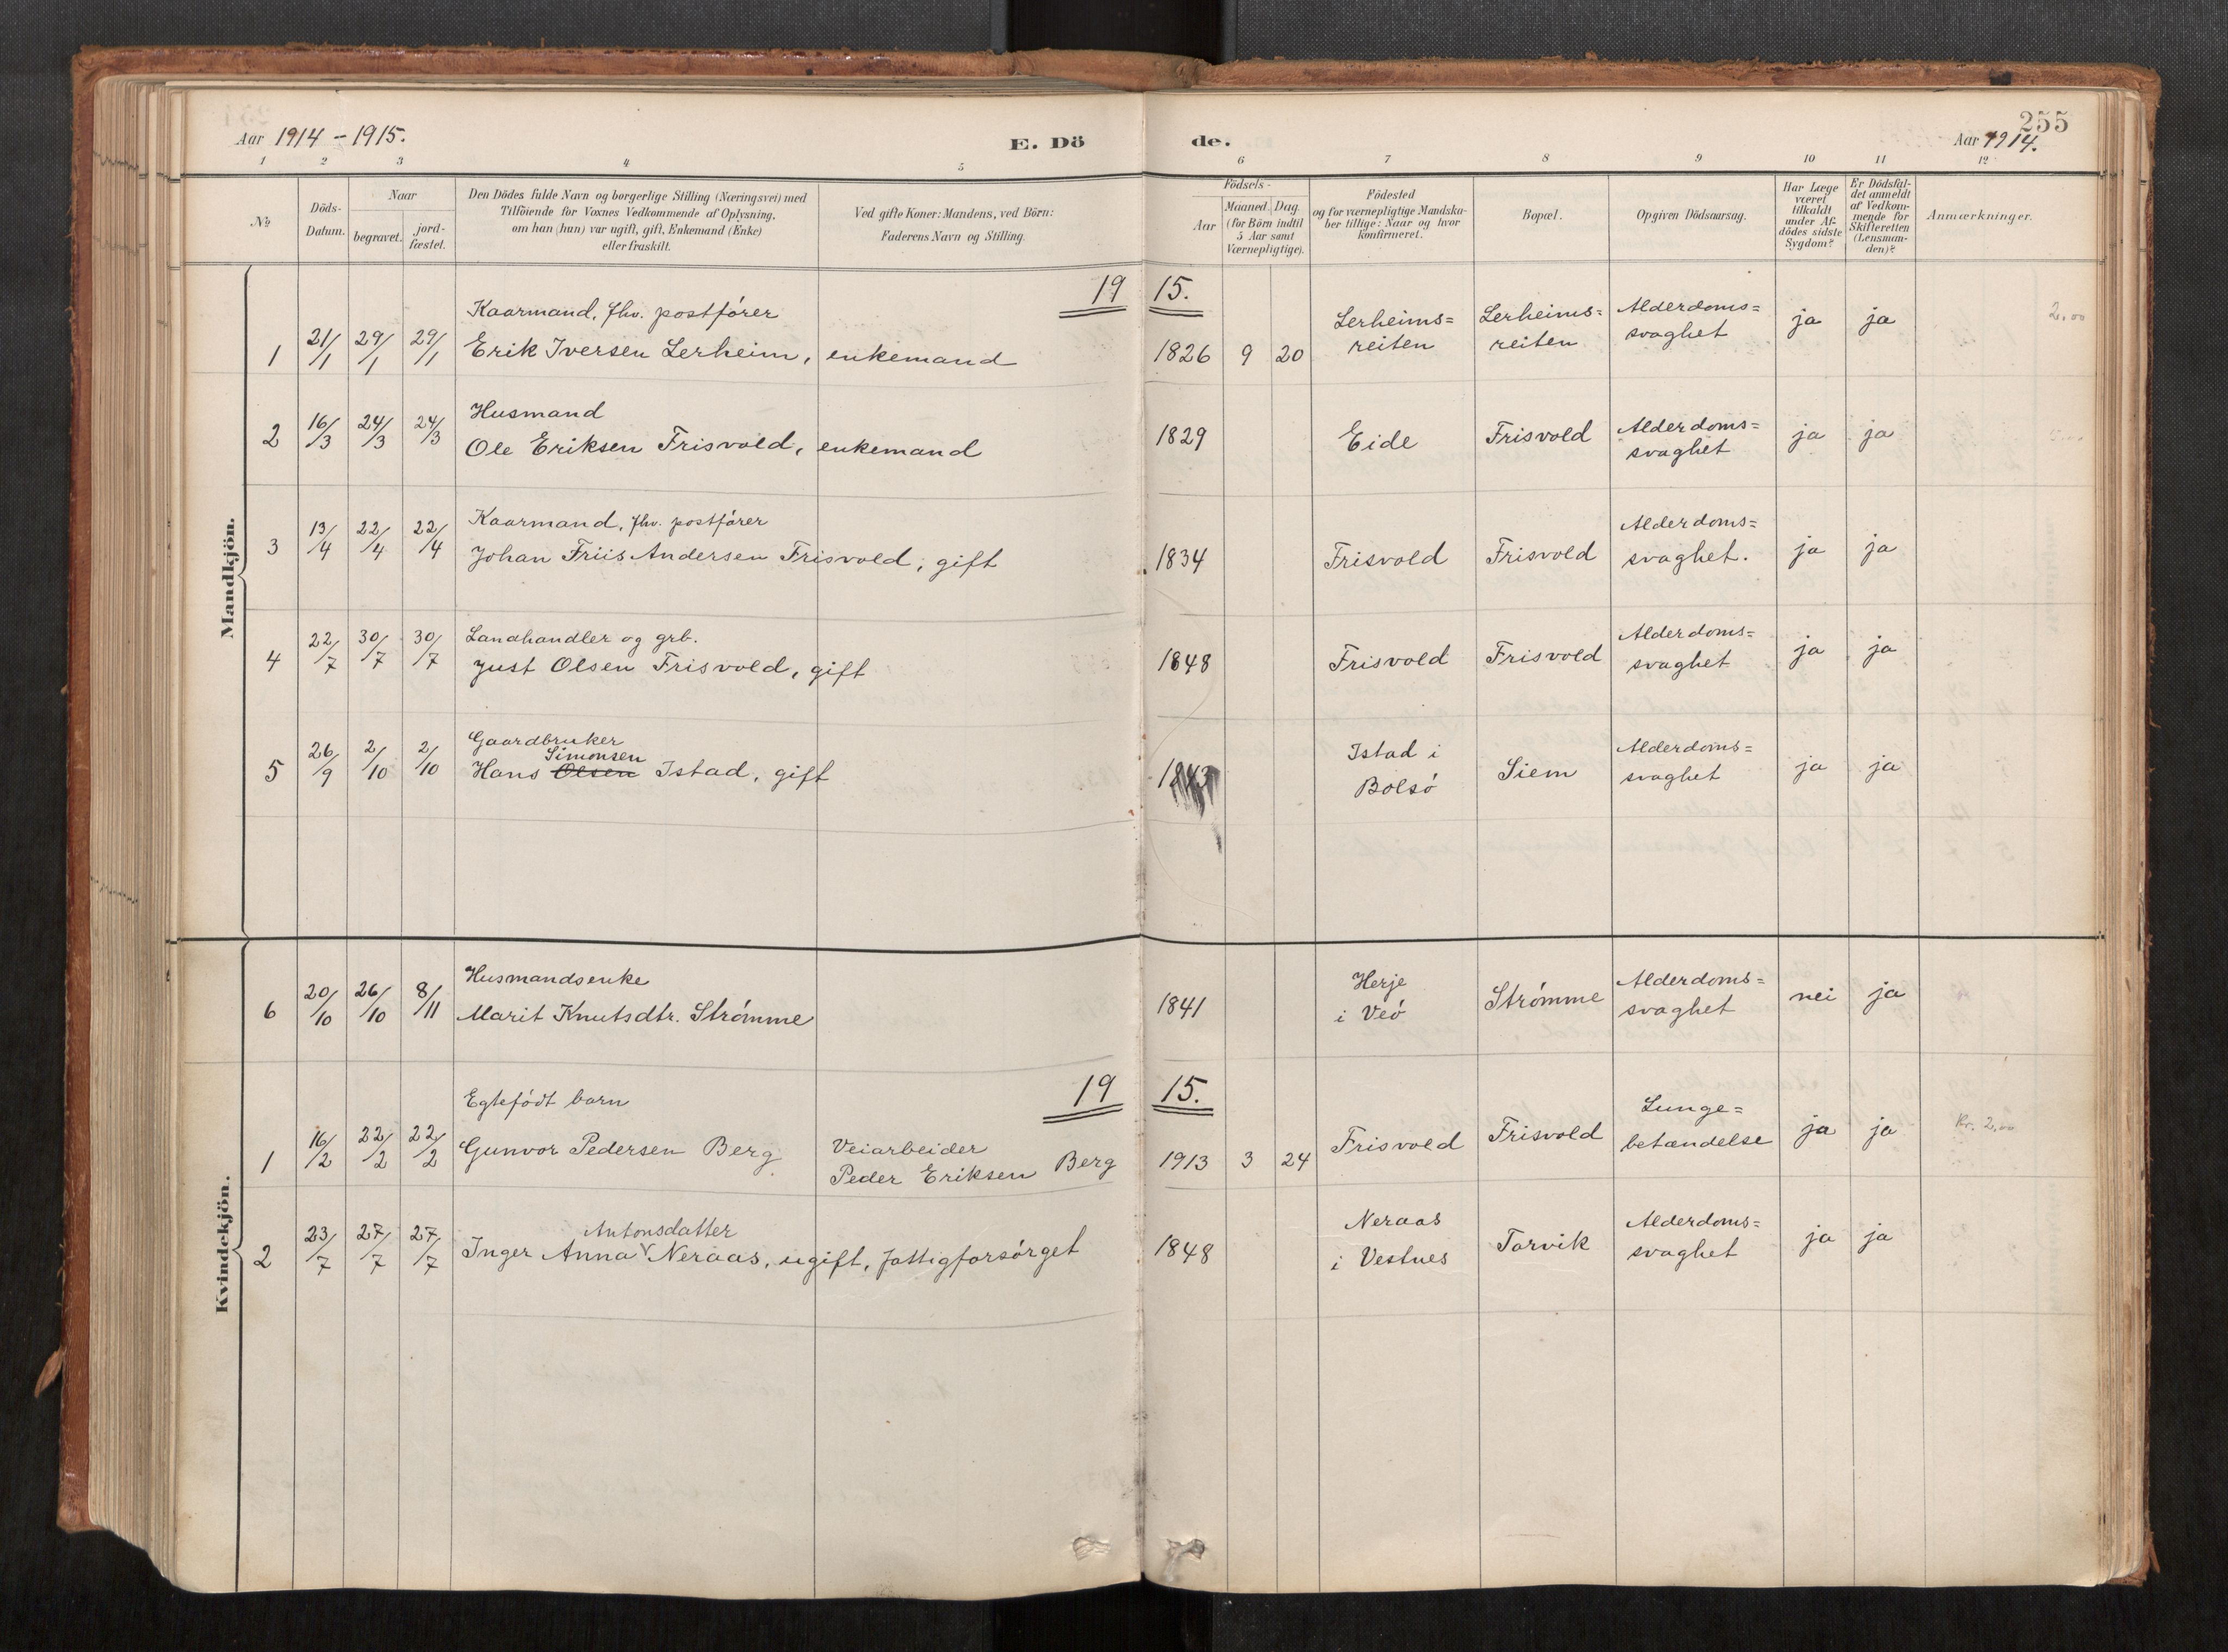 255
Aar 1914 - 1915. E. Dö de. Aar 1914.
1 2 3 4 5 6 7 8 9 10 11 12
No
Döds-Datum.
Naar
begravet.
jord-fæstet.
Den Dödes fulde Navn og borgerlige Stilling (Næringsvei) med
Tilföiende for Voxnes Vedkommende af Oplysning,
om han (hun) var ugift, gift, Enkemand (Enke)
eller fraskilt.
Ved gifte Koner: Mandens, ved Börn:
Faderens Navn og Stilling.
Födsels-
Aar
Maaned. Dag.
(for Börn indtil
5 Aar samt
Værnepligtige).
Födested
og for værnepligtige Mandska-
ber tillige: Naar og hvor
konfirmeret.
Bopæl.
Opgiven Dödsaarsag.
Har Læge
været
tilkaldt
under Af-
dödes sidste
Sygdom?
Er Dödsfal-
det anmeldt
af Vedkom-
mende for
Skifteretten
(Lensman-
den)?
Anmærkninger.
Mandkjön.
19 15.
Kaarmand, fhv. postfører
1 21/1 29/1 29/1 Erik Iversen Lerheim, enkemand 1826 9 20 Lerheims=
reiten Lerheims=
reiten Alderdoms=
svaghet ja ja 2,00
Husmand
2 16/3 24/3 24/3 Ole Eriksen Frisvold, enkemand 1829 Eide Frisvold Alderdoms=
svaghet ja ja
Kaarmand, fhv. postfører
3 13/4 22/4 22/4 Johan Friis Andersen Frisvold, gift 1834 Frisvold Frisvold Alderdoms=
svaghet. ja ja
Landhandler og grb.
4 22/7 30/7 30/7 Just Olsen Frisvold, gift 1848 Frisvold Frisvold Alderdoms=
svaghet ja ja
Gaardbruker
Simonsen
5 26/9 2/10 2/10 Hans Olsen Istad, gift 1843 Istad i
Bolsø Siem Alderdoms=
svaghet ja ja
Kvindekjön.
Husmandsenke
6 20/10 26/10 8/11 Marit Knutsdtr. Strømme 1841 Herje
i Veø Strømme Alderdoms=
svaghet nei ja
19 15.
Egtefødt barn
1 16/2 22/2 22/2 Gunvor Pedersen Berg Veiarbeider
Peder Eriksen Berg 1913 3 24 Frisvold Frisvold Lunge=
betændelse ja ja Kr. 2,00
Antonsdatter
2 23/7 27/7 27/7 Inger Anna Neraas, ugift, fattigforsørget 1848 Neraas
i Vestnes Torvik Alderdoms=
svaghet ja ja